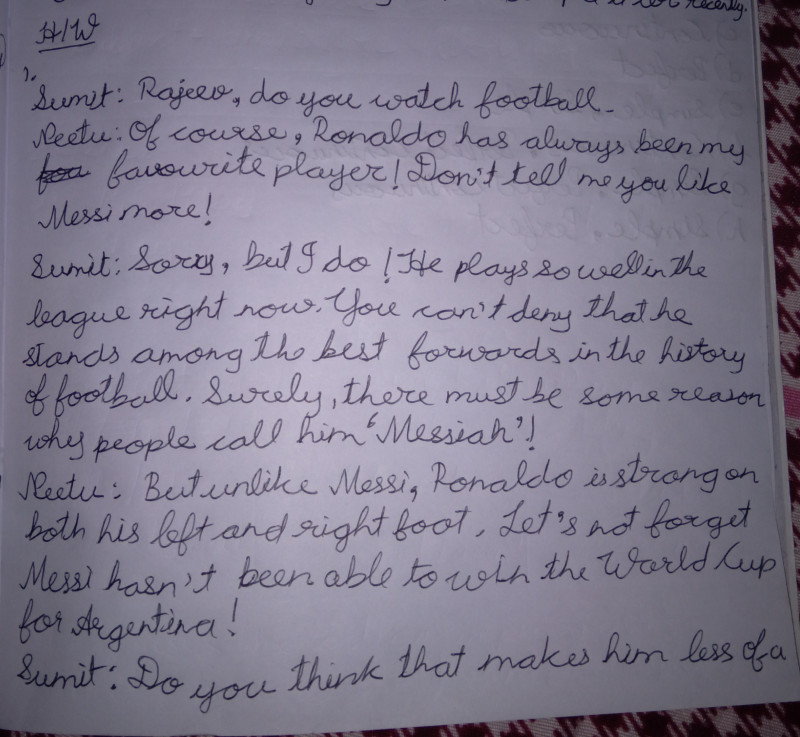 recently.
H/W
1.
Sumit: Rajeev, do you watch football.
Neetu: Of course, Ronaldo has always been my
favourite player! Don't tell me you like
Messi more!
Sumit: Sorry, but I do! He plays so well in the
league right now. You can't deny that he
stands among the best forwards in the history
of football. Surely, there must be some reason
why people call him 'Messiah'!
Neetu: But unlike Messi, Ronaldo is strong on
both his left and right foot. Let's not forget
Messi hasn't been able to win the World Cup
for Argentina!
Sumit: Do you think that makes him less of a